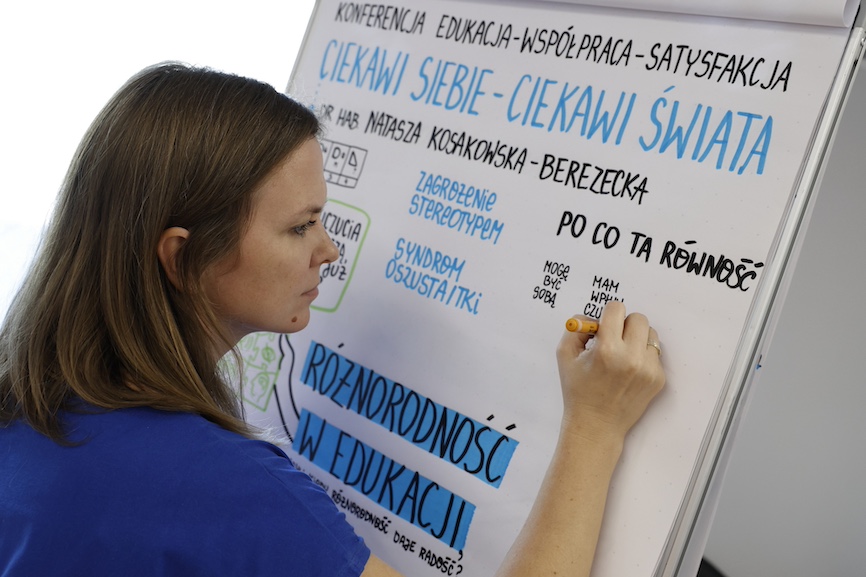 KONFERENCJA EDUKACJA-WSPÓŁPRACA-SATYSFAKCJA
CIEKAWI SIEBIE - CIEKAWI ŚWIATA
DR HAB NATASZA KOSAKOWSKA-BEREZECKA
ZAGROŻENIE
STEREOTYPEM
SYNDROM
OSZUSTA/TKI
PO CO TA RÓWNOŚĆ
MOGĘ
BYĆ
SOBĄ
MAM
RÓŻNORODNOŚĆ
W EDUKACJI,
RÓŻNORODNOŚĆ DAJE RADOŚĆ?